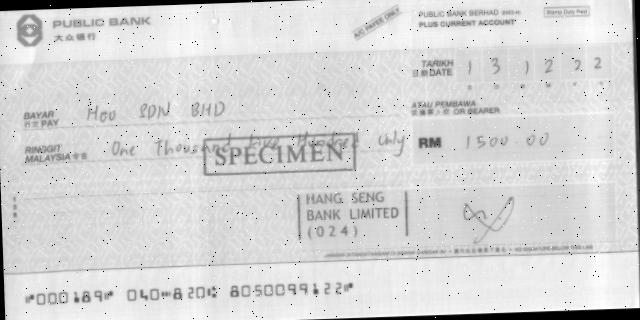 PUBLIC BANK
大众银行
A/C PAYEE ONLY
PUBLIC BANK BERHAD
PLUS CURRENT ACCOUNT
Stamp Duty Paid
TARIKH
日期 DATE
1 3 1 2 2 2
BAYAR
PAY
Hou SDN BHD
ATAU PEMBAWA
OR BEARER
RINGGIT
MALAYSIA
One Thousand Five Hundred Only
RM 1500 00
SPECIMEN
HANG SENG
BANK LIMITED
(024)
⑈000189⑈ 040⑉820⑆ 8050099122⑈